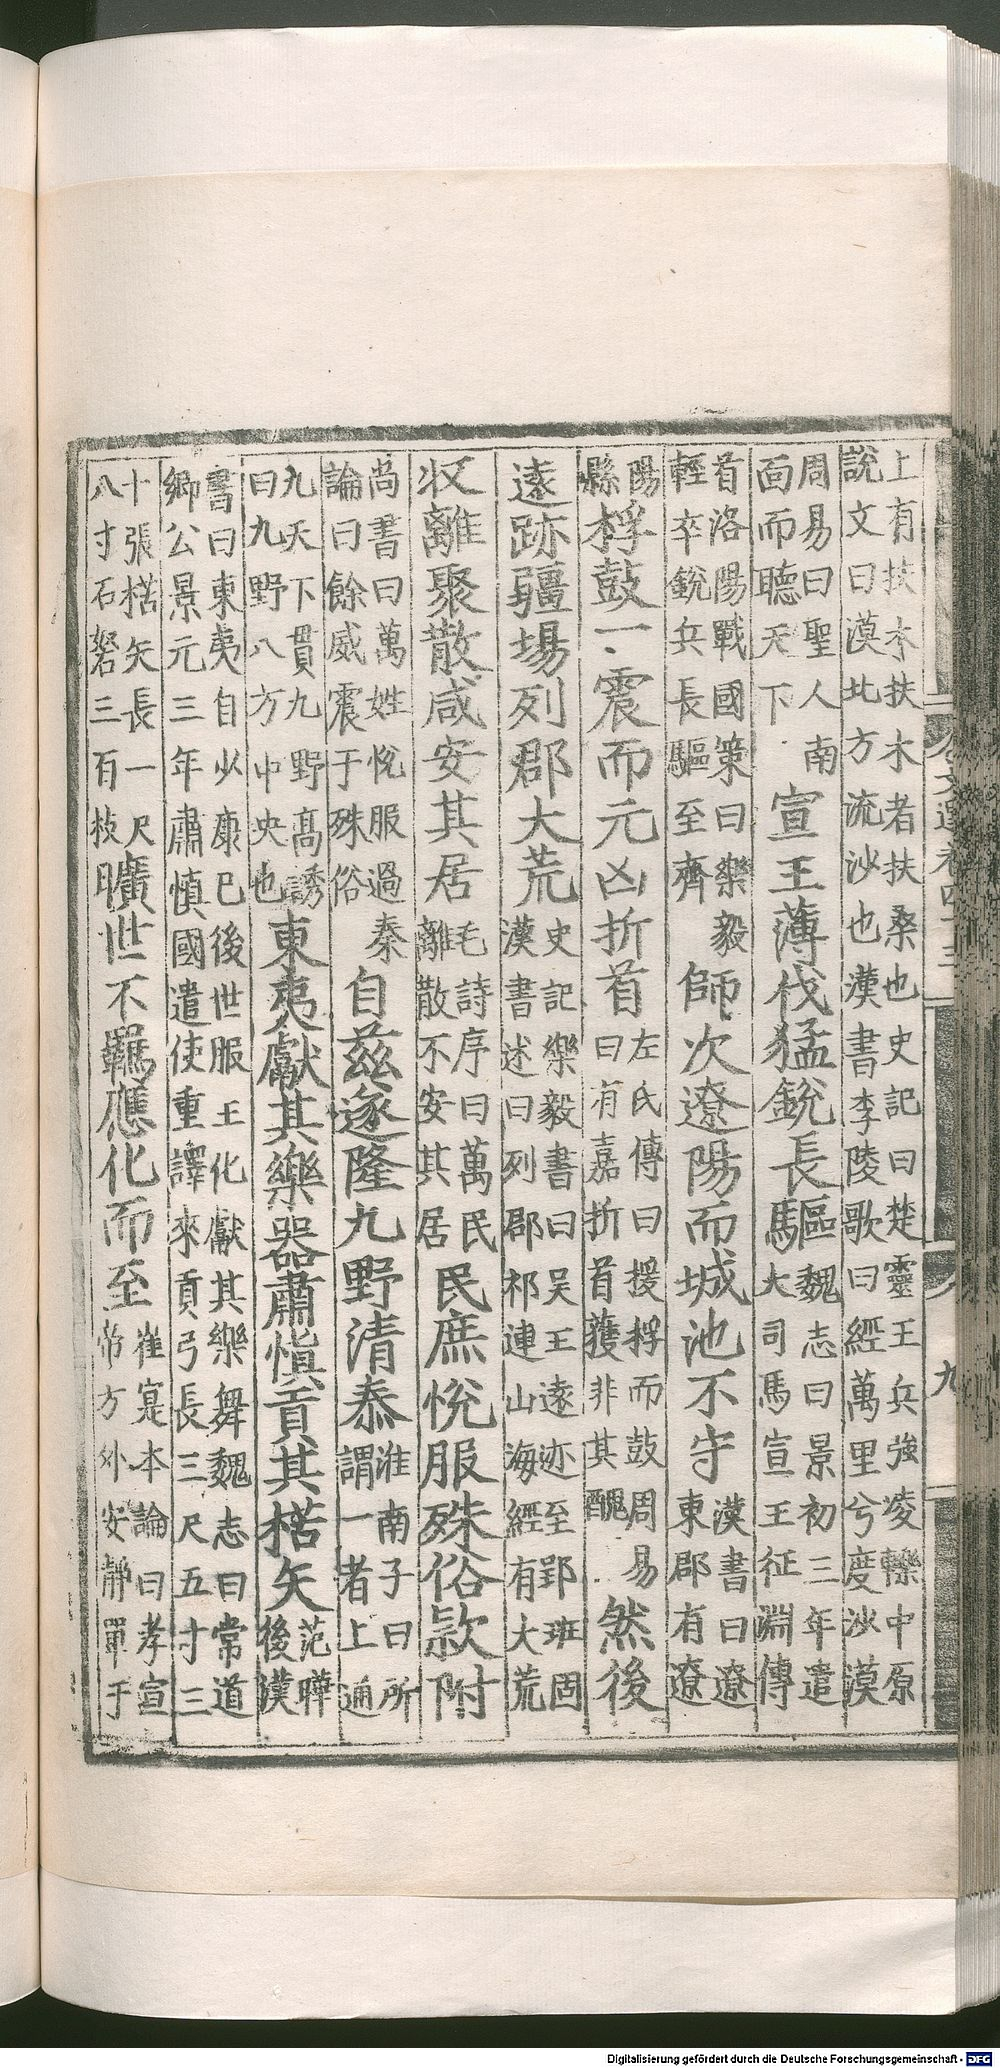 上有扶木扶木者扶桑也史記曰楚靈王兵強凌轢中原
說文曰漠北方流沙也漢書李陵歌曰經萬里兮度沙漠
周易曰聖人南
面而聽天下
宣王薄伐猛銳長驅
魏志曰景初三年遣
大司馬宣王征淵傳
首洛陽戰國策曰樂毅
輕卒銳兵長驅至齊
師次遼陽而城池不守
漢書曰遼
東郡有遼
陽
縣
桴鼓一震而元凶折首
左氏傳曰援桴而鼓周易
曰有嘉折首獲非其醜
然後
遠跡疆場列郡大荒
史記樂毅書曰吳王遠迹至郢班固
漢書述曰列郡祁連山海經有大荒
収離聚散咸安其居
毛詩序曰萬民
離散不安其居
民庶恱服殊俗款附
尚書曰萬姓恱服過秦
論曰餘威震于殊俗
自兹遂隆九野清泰
淮南子曰所
謂一者上通
九天下貫九野高誘
曰九野八方中央也
東夷獻其樂器肅慎貢其楛矢
范曄
後漢
書曰東夷自少康已後世服王化獻其樂舞魏志曰常道
鄉公景元三年肅慎國遣使重譯來貢弓長三尺五寸三
十張楛矢長一尺
八寸石砮三百枝
曠世不羈應化而至
崔寔本論曰孝宣
帝方外安靜單于
文選卷四十三
九
Digitalisierung gefördert durch die Deutsche Forschungsgemeinschaft - DFG